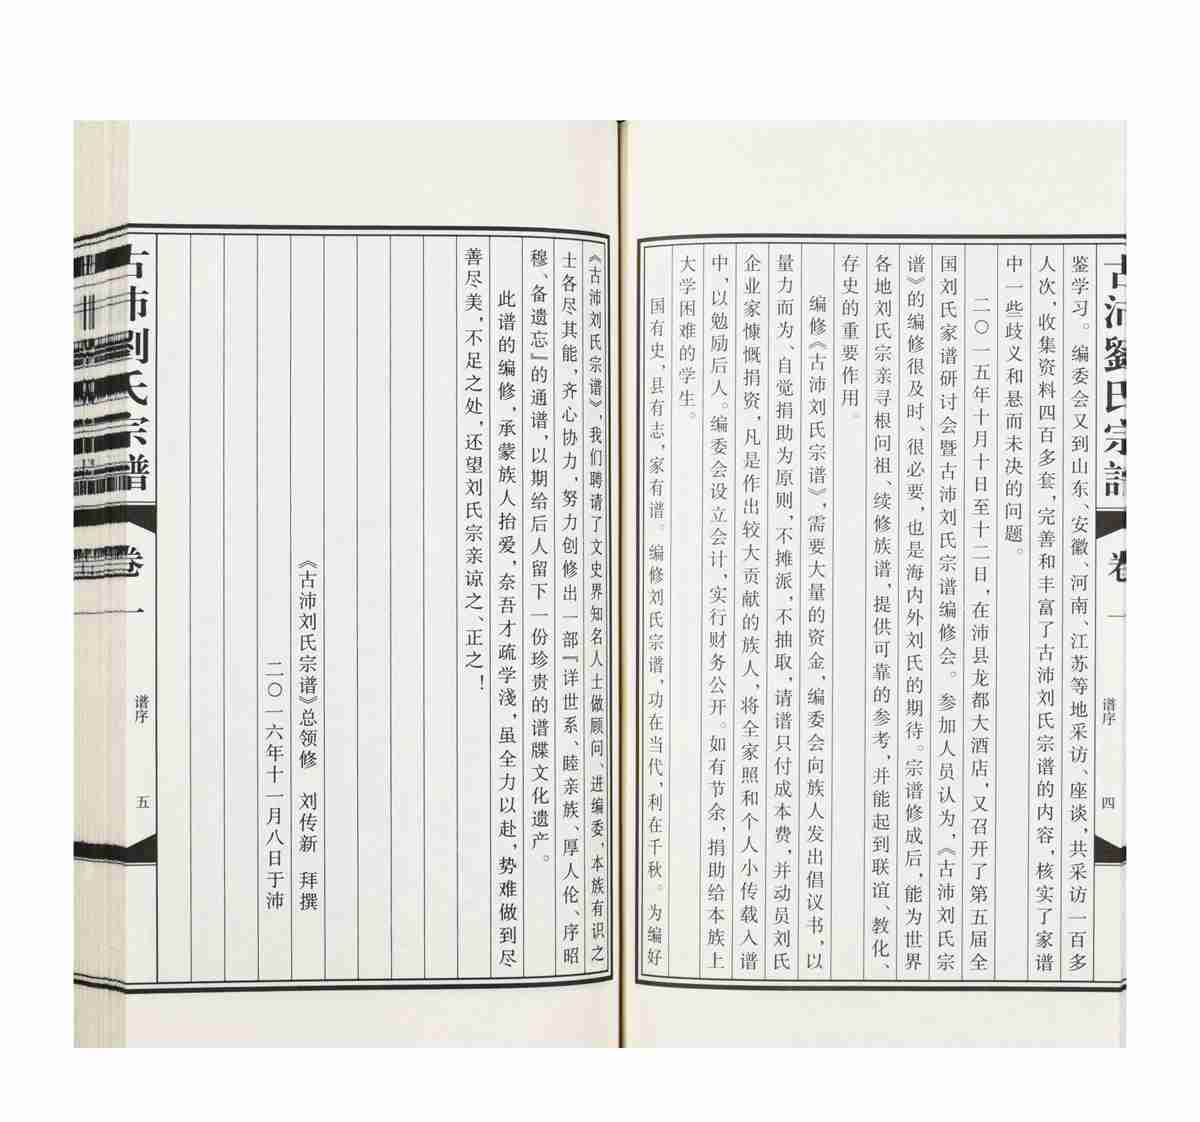 古沛劉氏宗譜
卷一
谱序
四
鉴学习。编委会又到山东、安徽、河南、江苏等地采访、座谈，共采访一百多
人次，收集资料四百多套，完善和丰富了古沛刘氏宗谱的内容，核实了家谱
中一些歧义和悬而未决的问题。
二〇一五年十月十日至十二日，在沛县龙都大酒店，又召开了第五届全
国刘氏家谱研讨会暨古沛刘氏宗谱编修会。参加人员认为，《古沛刘氏宗
谱》的编修很及时、很必要，也是海内外刘氏的期待。宗谱修成后，能为世界
各地刘氏宗亲寻根问祖、续修族谱，提供可靠的参考，并能起到联谊、教化、
存史的重要作用。
编修《古沛刘氏宗谱》，需要大量的资金，编委会向族人发出倡议书，以
量力而为、自觉捐助为原则，不摊派，不抽取，请谱只付成本费，并动员刘氏
企业家慷慨捐资，凡是作出较大贡献的族人，将全家照和个人小传载入谱
中，以勉励后人。编委会设立会计，实行财务公开。如有节余，捐助给本族上
大学困难的学生。
国有史，县有志，家有谱。编修刘氏宗谱，功在当代，利在千秋。为编好
《古沛刘氏宗谱》，我们聘请了文史界知名人士做顾问、进编委，本族有识之
士各尽其能，齐心协力，努力创修出一部『详世系、睦亲族、厚人伦、序昭
穆、备遗忘』的通谱，以期给后人留下一份珍贵的谱牒文化遗产。
此谱的编修，承蒙族人抬爱，奈吾才疏学浅，虽全力以赴，势难做到尽
善尽美，不足之处，还望刘氏宗亲谅之、正之！
《古沛刘氏宗谱》总领修　刘传新　拜撰
二〇一六年十一月八日于沛
古沛劉氏宗譜
卷一
谱序
五